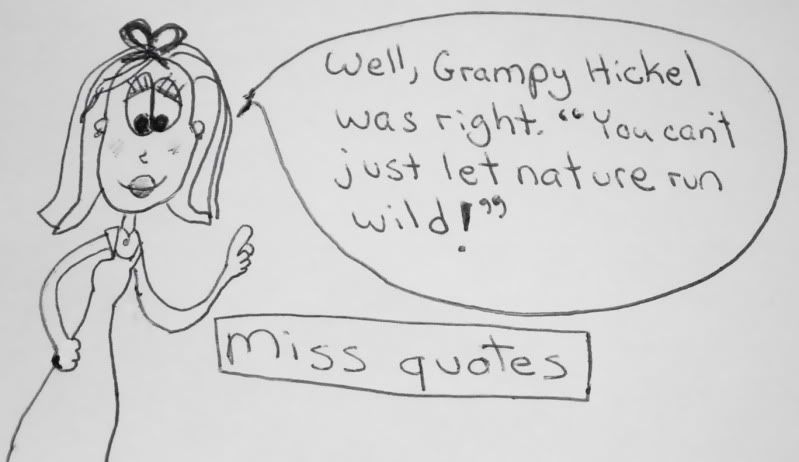 Well, Grampy Hickel
was right. “You can't
just let nature run
wild!”
miss quotes